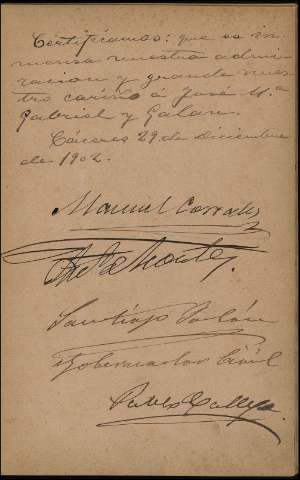 Certificamos: que es in
mensa nuestra admi-
racion y grande nues
tro cariño á José M.ª
Gabriel y Galán.
Cáceres 29 de diciembre
de 1902.
Manuel Corrales
Santiago
Gobernador Civil
Pablo Gallego